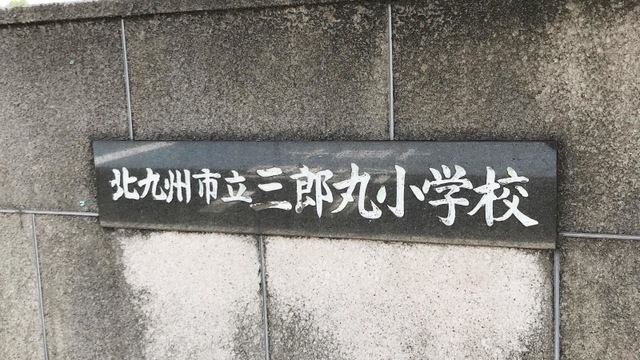 北九州市立三郎丸小学校